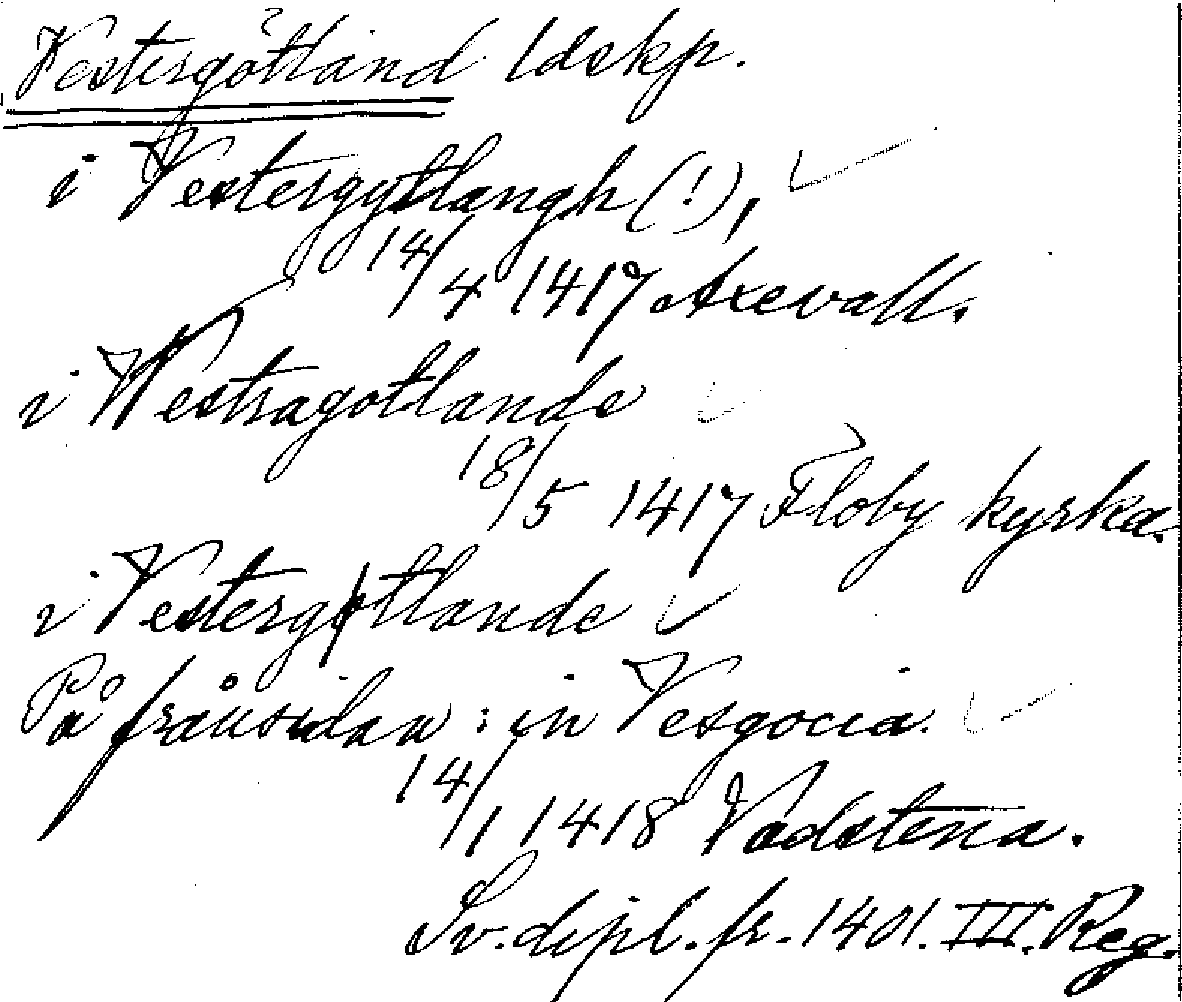 Vestergötland ldskp.
i Vestergytlangh (!),
14/4 1417 Axevall.
i Westragotlande
18/5 1417 Floby kyrka.
i Vestergøtlande
På frånsidan: in Vesgocia.
14/1 1418 Vadstena.
Sv. dipl. fr. 1401. III. Reg.